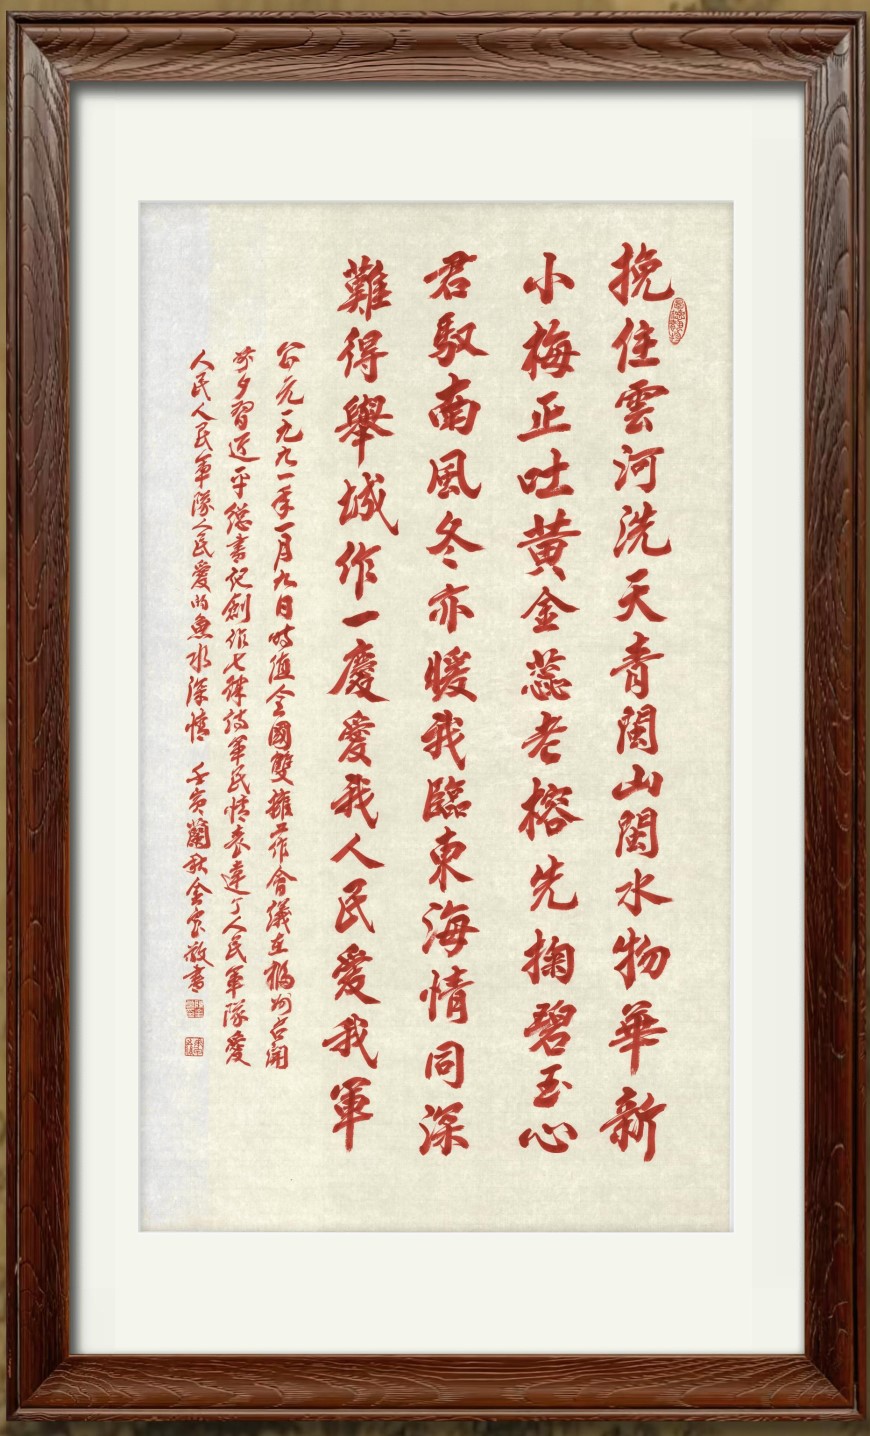 挽住雲河洗天青閩山閩水物華新
小梅正吐黄金蕊老榕先掬碧玉心
君馭南風冬亦暖我臨東海情同深
難得舉城作一慶愛我人民愛我軍
公元一九九一年一月九日時值全國雙擁工作會議在榕州召開
前夕習近平總書記創作七律詩軍民情表達了人民軍隊愛
人民人民軍隊人民愛的魚水深情 壬寅蘭秋金
敬書